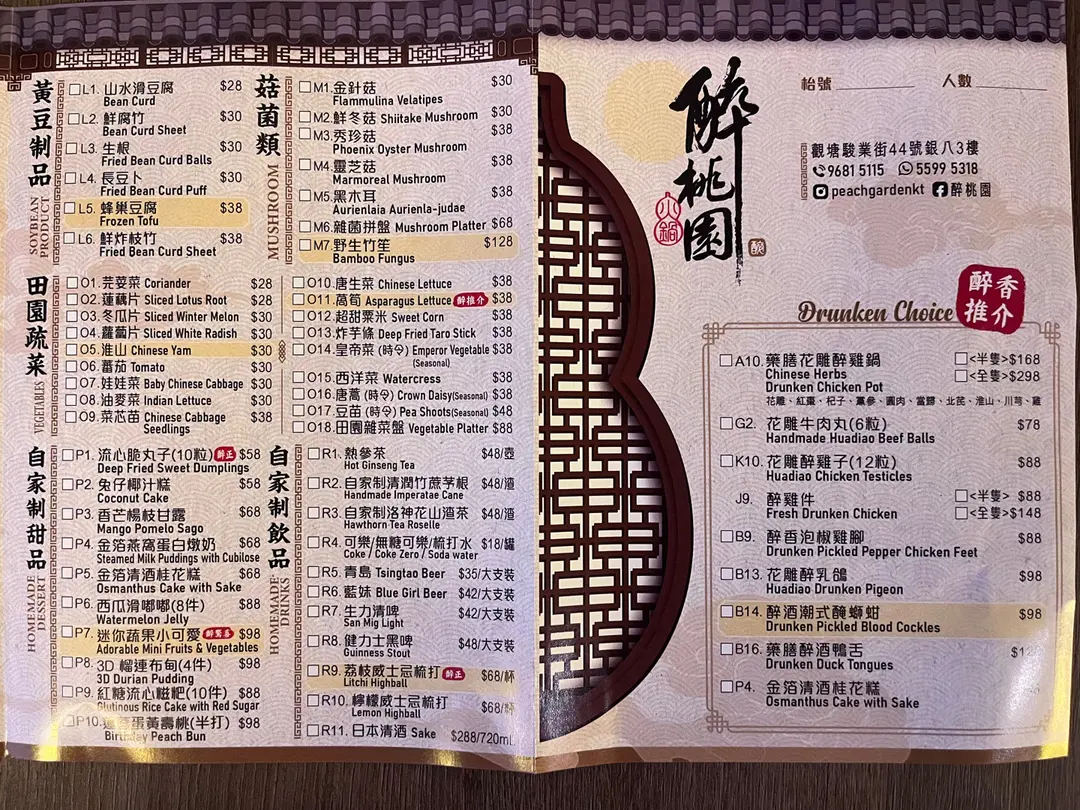 黃豆制品
SOYBEAN PRODUCT
L1. 山水滑豆腐 $28
Bean Curd
L2. 鮮腐竹 $30
Bean Curd Sheet
L3. 生根 $30
Fried Bean Curd Balls
L4. 長豆卜 $30
Fried Bean Curd Puff
L5. 蜂巢豆腐 $38
Frozen Tofu
L6. 鮮炸枝竹 $38
Fried Bean Curd Sheet
菇菌類
MUSHROOM
M1. 金針菇 $30
Flammulina Velatipes
M2. 鮮冬菇 Shiitake Mushroom $30
M3. 秀珍菇 $38
Phoenix Oyster Mushroom
M4. 靈芝菇 $38
Marmoreal Mushroom
M5. 黑木耳 $38
Aurienlaia Aurienla-judae
M6. 雜菌拼盤 Mushroom Platter $68
M7. 野生竹笙 $128
Bamboo Fungus
田園疏菜
VEGETABLES
O1. 芫荽菜 Coriander $28
O2. 蓮藕片 Sliced Lotus Root $28
O3. 冬瓜片 Sliced Winter Melon $30
O4. 蘿蔔片 Sliced White Radish $30
O5. 淮山 Chinese Yam $30
O6. 番茄 Tomato $30
O7. 娃娃菜 Baby Chinese Cabbage $30
O8. 油麥菜 Indian Lettuce $30
O9. 菜芯苗 Chinese Cabbage $38
Seedlings
O10. 唐生菜 Chinese Lettuce $38
O11. 萵筍 Asparagus Lettuce 醉推介 $38
O12. 超甜粟米 Sweet Corn $38
O13. 炸芋條 Deep Fried Taro Stick $38
O14. 皇帝菜 (時令) Emperor Vegetable $38
(Seasonal)
O15. 西洋菜 Watercress $38
O16. 唐蒿 (時令) Crown Daisy(Seasonal) $38
O17. 豆苗 (時令) Pea Shoots(Seasonal) $48
O18. 田園雜菜盤 Vegetable Platter $88
自家制甜品
HOMEMADE DESSERT
P1. 流心脆丸子(10粒) 醉正 $58
Deep Fried Sweet Dumplings
P2. 兔仔椰汁糕 $58
Coconut Cake
P3. 香芒楊枝甘露 $68
Mango Pomelo Sago
P4. 金箔燕窩蛋白燉奶 $68
Steamed Milk Puddings with Cubilose
P5. 金箔清酒桂花糕 $68
Osmanthus Cake with Sake
P6. 西瓜滑嘟嘟(8件) $88
Watermelon Jelly
P7. 迷你蔬果小可愛 $98
Adorable Mini Fruits & Vegetables
P8. 3D 榴連布甸(4件) $98
3D Durian Pudding
P9. 紅糖流心糍粑(10件) $88
Glutinous Rice Cake with Red Sugar
P10. 蛋黃壽桃(半打) $98
Birthday Peach Bun
自家制飲品
HOMEMADE DRINKS
R1. 熱參茶 $48/壺
Hot Ginseng Tea
R2. 自家制清潤竹蔗茅根 $48/渣
Handmade Imperatae Cane
R3. 自家制洛神花山渣茶 $48/渣
Hawthorn Tea Roselle
R4. 可樂/無糖可樂/梳打水 $18/罐
Coke / Coke Zero / Soda water
R5. 青島 Tsingtao Beer $35/大支裝
R6. 藍妹 Blue Girl Beer $42/大支裝
R7. 生力清啤 $42/大支裝
San Mig Light
R8. 健力士黑啤 $48/大支裝
Guinness Stout
R9. 荔枝威士忌梳打 醉正 $68/杯
Litchi Highball
R10. 檸檬威士忌梳打 $68/杯
Lemon Highball
R11. 日本清酒 Sake $288/720mL
醉桃園
火鍋
枱號 人數
觀塘駿業街44號銀八3樓
9681 5115 5599 5318
peachgardenkt 醉桃園
Drunken Choice
醉香推介
A10. 藥膳花雕醉雞鍋 <半隻>$168
Chinese Herbs <全隻>$298
Drunken Chicken Pot
花雕、紅棗、杞子、黨參、圓肉、當歸、北芪、淮山、川芎、雞
G2. 花雕牛肉丸(6粒) $78
Handmade Huadiao Beef Balls
K10. 花雕醉雞子(12粒) $88
Huadiao Chicken Testicles
J9. 醉雞件 <半隻> $88
Fresh Drunken Chicken <全隻>$148
B9. 醉香泡椒雞腳 $88
Drunken Pickled Pepper Chicken Feet
B13. 花雕醉乳鴿 $98
Huadiao Drunken Pigeon
B14. 醉酒潮式醃螄蚶 $98
Drunken Pickled Blood Cockles
B16. 藥膳醉酒鴨舌
Drunken Duck Tongues
P4. 金箔清酒桂花糕
Osmanthus Cake with Sake